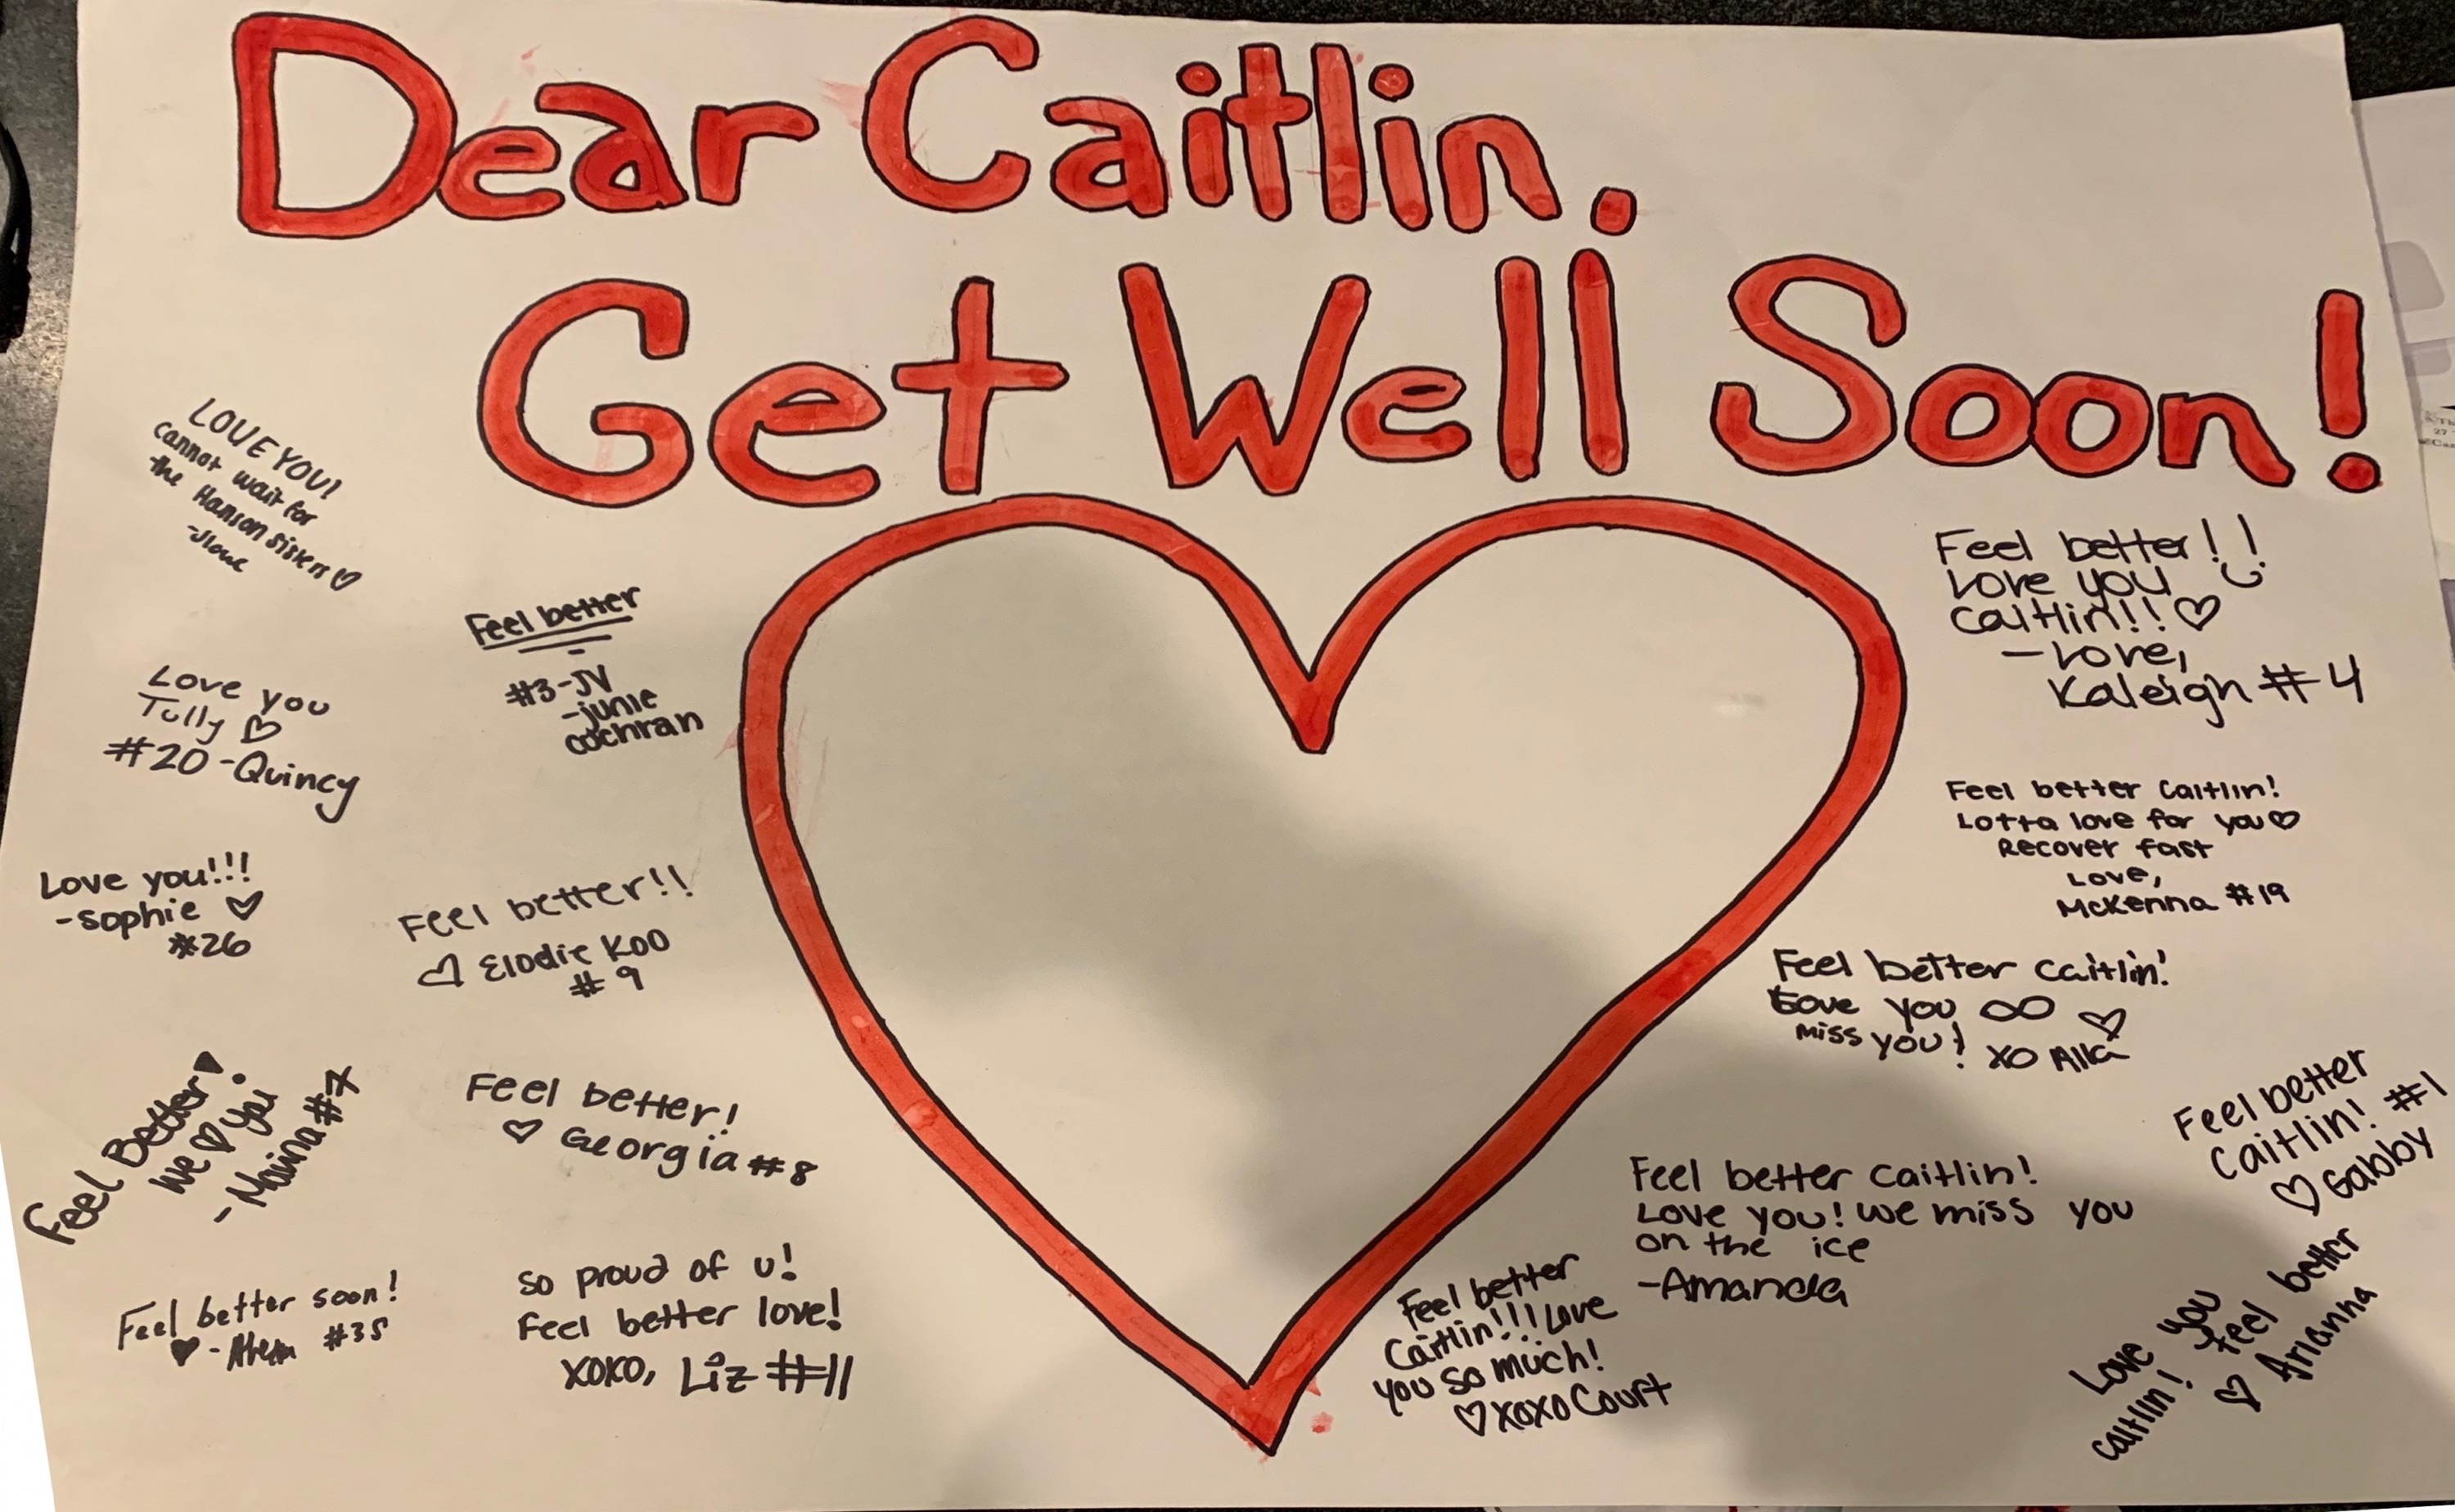 Dear Caitlin.
Get Well Soon!
LOVE YOU!
cannot wait for
the Hanson sisters ♡
Feel better
#3-JV
-junie
cochran
Love you
Tully ♡
#20 -Quincy
Love you!!!
-sophie ♡
#26
Feel better!!
♡ Elodie Koo
# 9
Feel Better!
we ♡ you
- Naina #7
Feel better!
♡ Georgia #8
Feel better soon!
♥ - #35
so proud of u!
Feel better love!
xoxo, Liz #11
Feel better!!
Love you
caitlin!! ♡
- Love,
Kaleigh #4
Feel better Caitlin!
Lotta love for you ♡
Recover fast
Love,
McKenna #19
Feel better caitlin!
Love you ∞ ♡
miss you! xo Alla
Feel better
Caitlin! #1
♡ Gabby
Feel better Caitlin!
Love you! we miss you
on the ice
-Amanda
Feel better
Caitlin!!! Love
you so much!
♡ xoxo Court
Love you
caitlin! feel better
♡ Arianna